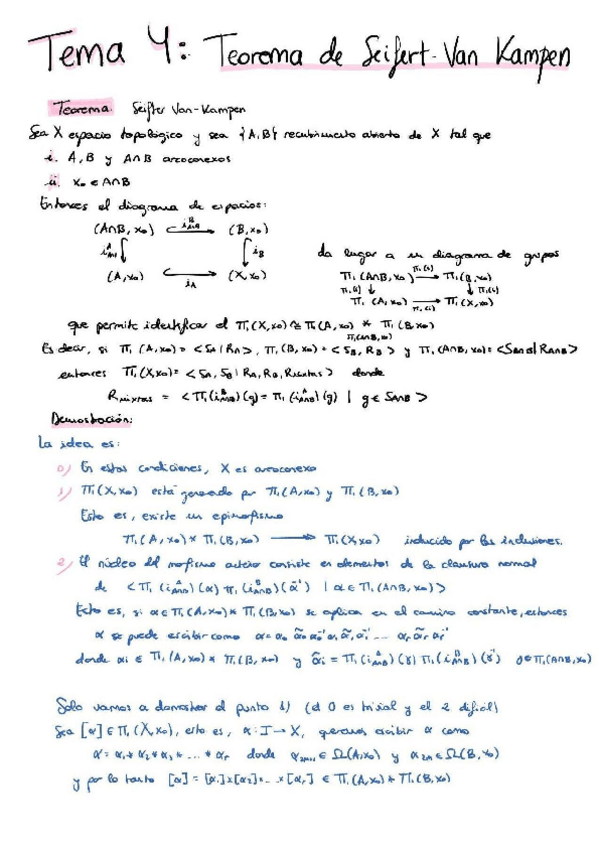 Tema 4: Teorema de Seifert-Van Kampen
Teorema: Seifter Van-Kampen
Sea X espacio topológico y sea {A,B} recubrimiento abierto de X tal que
i. A, B y A∩B arcoconexos
ii. x₀ ∈ A∩B
Entonces el diagrama de espacios:
(A∩B, x₀) (B, x₀)
i_B
da lugar a un diagrama de grupos
(A, x₀) (X, x₀)
i_A
π₁(A∩B, x₀) → π₁(B, x₀)
π₁(A, x₀) → π₁(X, x₀)
que permite identificar el π₁(X,x₀) ≅ π₁(A,x₀) * π₁(B,x₀)
π₁(A∩B,x₀)
Es decir, si π₁(A,x₀) = <S_A | R_A>, π₁(B,x₀) = <S_B, R_B> y π₁(A∩B,x₀) = <S_A∩B | R_A∩B>
entonces π₁(X,x₀) = <S_A, S_B | R_A, R_B, R_mixtas> donde
R_mixtas = <π₁(i^A_A∩B)(g) = π₁(i^B_A∩B)(g) | g ∈ S_A∩B>
Demostración:
La idea es:
0) En estas condiciones, X es arcoconexo
1) π₁(X,x₀) está generado por π₁(A,x₀) y π₁(B,x₀)
Esto es, existe un epimorfismo
π₁(A,x₀) * π₁(B,x₀) → π₁(X,x₀) inducido por las inclusiones.
2) El núcleo del morfismo anterior consiste en elementos de la clausura normal
de <π₁(i^A_A∩B)(α) π₁(i^B_A∩B)(α⁻¹) | α ∈ π₁(A∩B,x₀)>
Esto es, si α ∈ π₁(A,x₀) * π₁(B,x₀) se aplica en el camino constante, entonces
α se puede escribir como
donde αᵢ ∈ π₁(A,x₀) * π₁(B,x₀) y α̃ᵢ = π₁(i^A_A∩B)(γ) π₁(i^B_A∩B)(γ⁻¹) γ ∈ π₁(A∩B,x₀)
Solo vamos a demostrar el punto 1) (el 0 es trivial y el 2 difícil)
Sea [α] ∈ π₁(X,x₀), esto es, α: I → X, queremos escribir α como
α = α₁ * α₂ * α₃ * ... * αᵣ donde α₂ₙ₊₁ ∈ Ω(A,x₀) y α₂ₙ ∈ Ω(B,x₀)
y por lo tanto [α] = [α₁]*[α₂]*...*[αᵣ] ∈ π₁(A,x₀) * π₁(B,x₀)